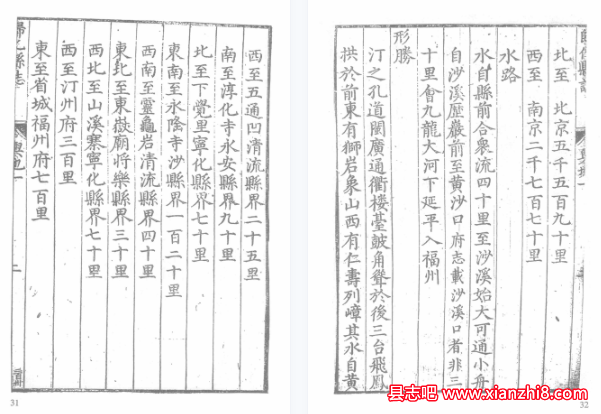 西至五通凹清流縣界二十五里
南至淳化寺永安縣界九十里
北至下覺里寧化縣界七十里
東南至永隆寺沙縣界一百二十里
西南至靈龜岩清流縣界四十里
東北至東嶽廟將樂縣界三十里
西北至山溪寨寧化縣界七十里
西至汀州府三百里
東至省城福州府七百里
歸化縣志
31
北至 北京五千五百九十里
西至 南京二千七百七十里
水路
水自縣前合衆流四十里至沙溪始大可通小舟
自沙溪歷巖前至黄沙口府志載沙溪口者非三
十里會九龍大河下延平入福州
形勝
汀之孔道閩廣通衢樓臺鼓角聳於後三台飛鳳
拱於前東有獅岩象山西有仁壽列嶂其水自黄
32
县志吧--www.xianzhi8.com